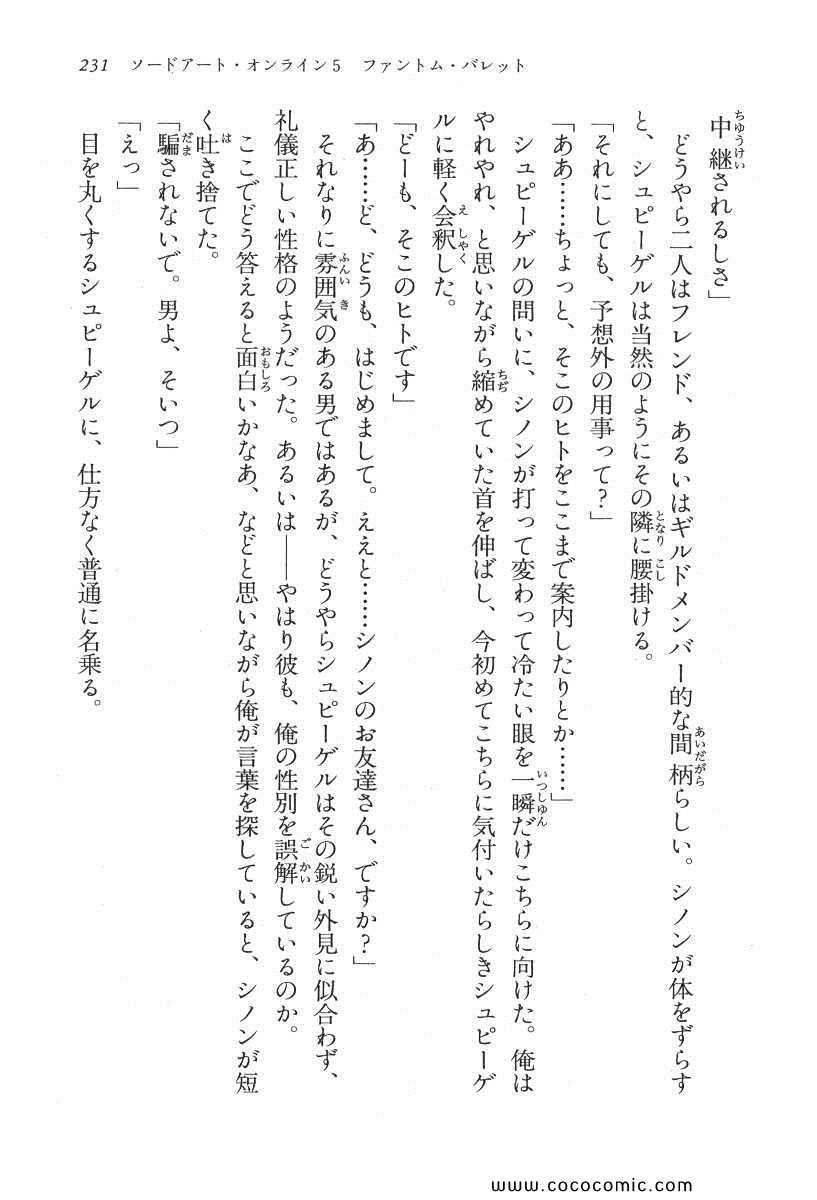 231　ソードアート・オンライン5　ファントム・バレット
中継されるしさ」
　どうやら二人はフレンド、あるいはギルドメンバー的な間柄らしい。シノンが体をずらす
と、シュピーゲルは当然のようにその隣に腰掛ける。
「それにしても、予想外の用事って？」
「ああ……ちょっと、そこのヒトをここまで案内したりとか……」
　シュピーゲルの問いに、シノンが打って変わって冷たい眼を一瞬だけこちらに向けた。俺は
やれやれ、と思いながら縮めていた首を伸ばし、今初めてこちらに気付いたらしきシュピーゲ
ルに軽く会釈した。
「どーも、そこのヒトです」
「あ……ど、どうも、はじめまして。ええと……シノンのお友達さん、ですか？」
　それなりに雰囲気のある男ではあるが、どうやらシュピーゲルはその鋭い外見に似合わず、
礼儀正しい性格のようだった。あるいは――やはり彼も、俺の性別を誤解しているのか。
　ここでどう答えると面白いかなあ、などと思いながら俺が言葉を探していると、シノンが短
く吐き捨てた。
「騙されないで。男よ、そいつ」
「えっ」
　目を丸くするシュピーゲルに、仕方なく普通に名乗る。
www.cococomic.com